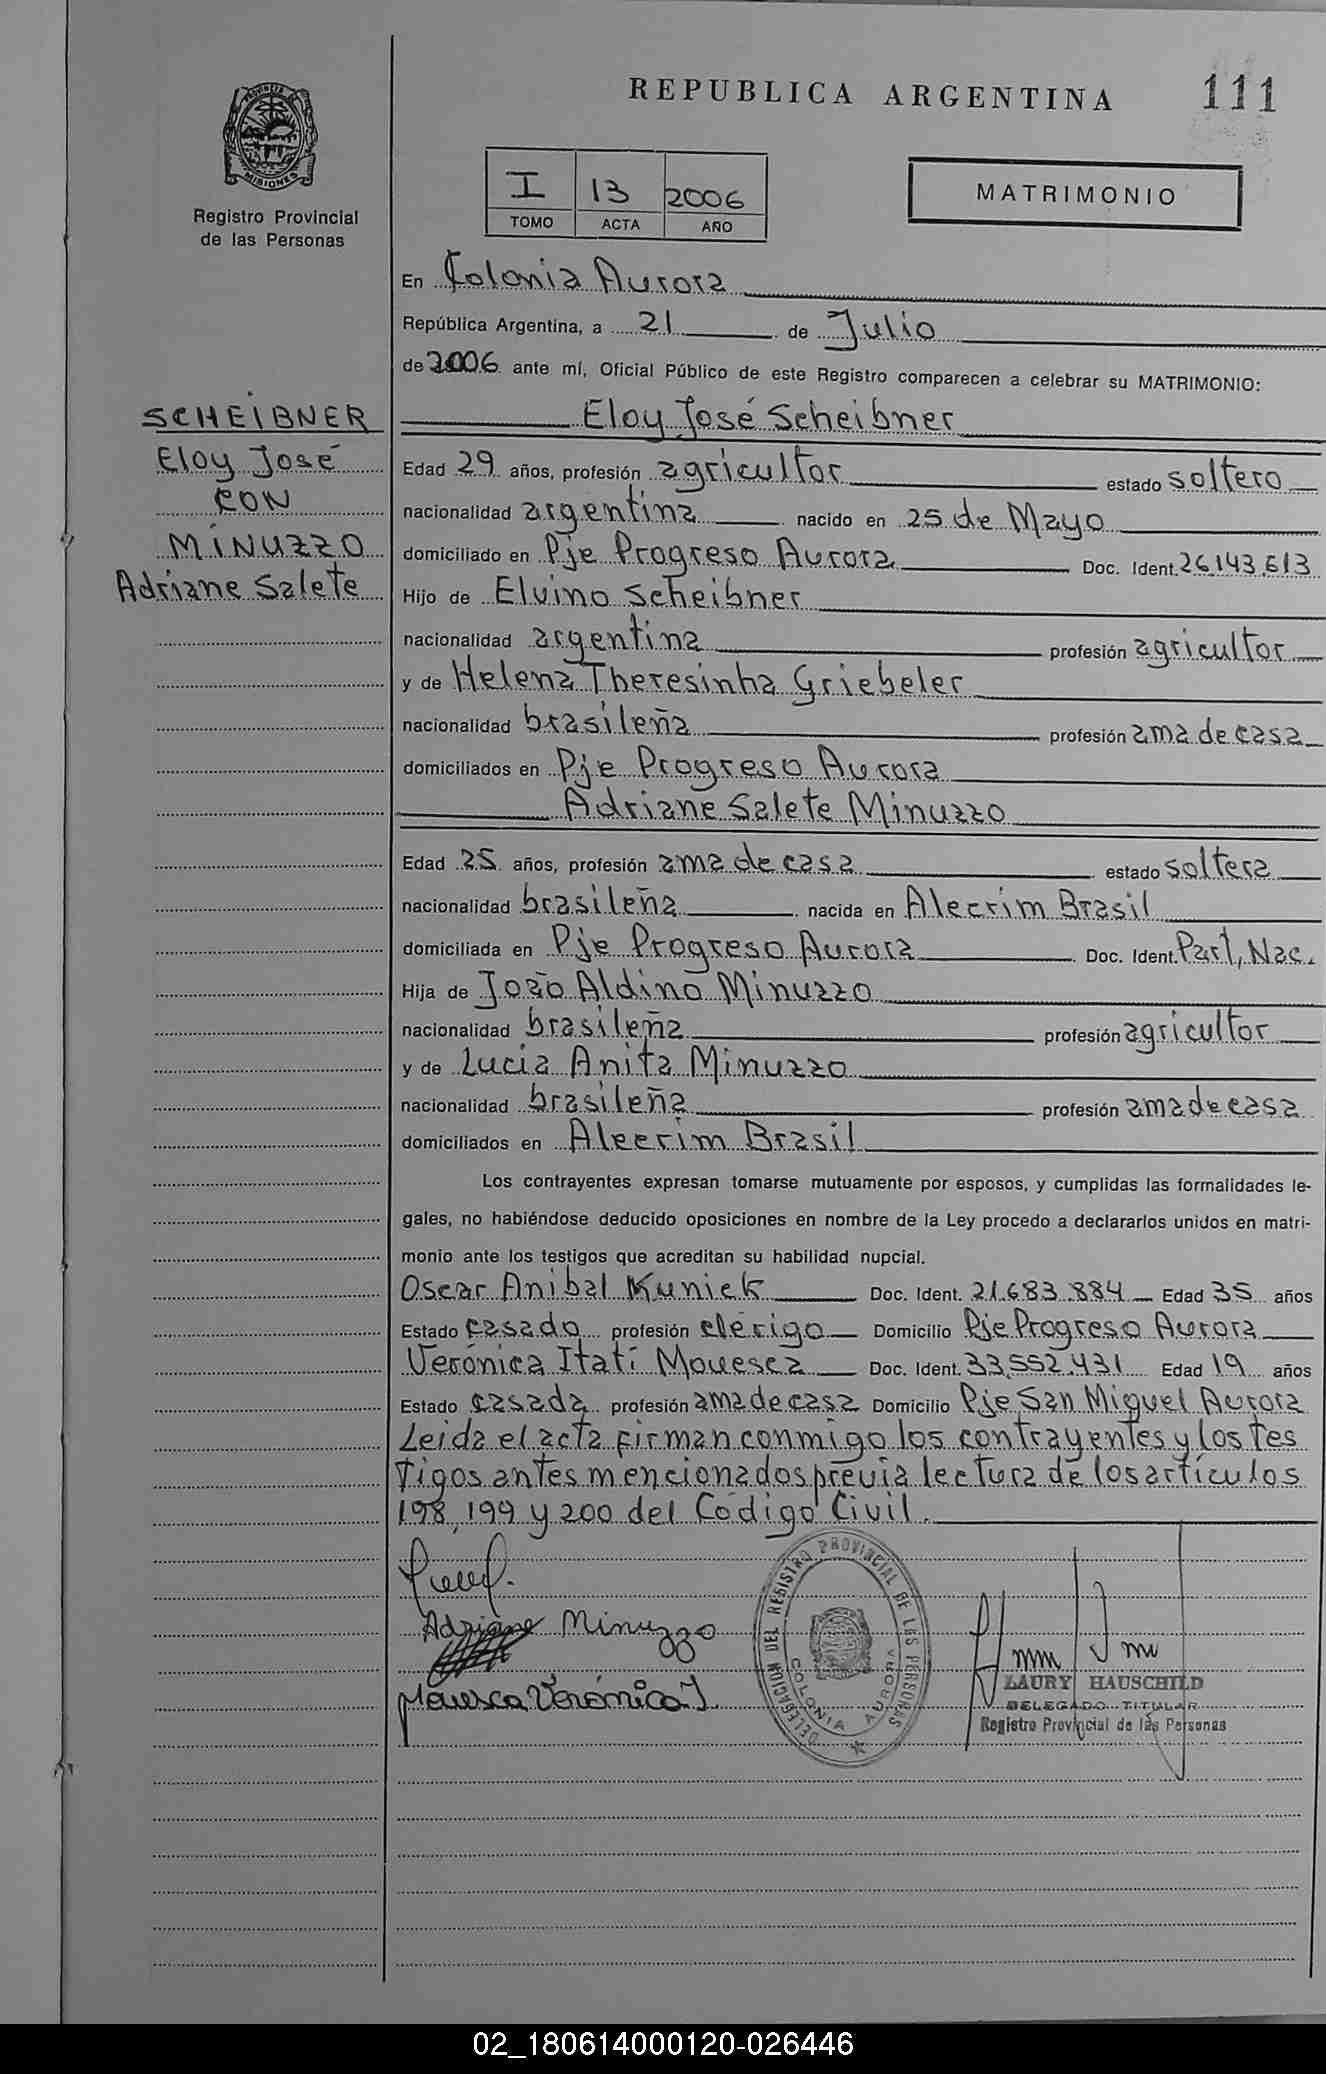 REPUBLICA ARGENTINA 111
PROVINCIA DE MISIONES
Registro Provincial
de las Personas
I 13 2006
TOMO ACTA AÑO
MATRIMONIO
SCHEIBNER
Eloy José
CON
MINUZZO
Adriane Salete
En Colonia Aurora
República Argentina, a 21 de Julio
de 2006 ante mí, Oficial Público de este Registro comparecen a celebrar su MATRIMONIO:
Eloy José Scheibner
Edad 29 años, profesión agricultor estado soltero
nacionalidad argentina nacido en 25 de Mayo
domiciliado en Pje Progreso Aurora Doc. Ident. 26.143.613
Hijo de Elvino Scheibner
nacionalidad argentina profesión agricultor
y de Helena Theresinha Griebeler
nacionalidad brasileña profesión ama de casa
domiciliados en Pje Progreso Aurora
Adriane Salete Minuzzo
Edad 25 años, profesión ama de casa estado soltera
nacionalidad brasileña nacida en Alecrim Brasil
domiciliada en Pje Progreso Aurora Doc. Ident. Part, Nac.
Hija de João Aldino Minuzzo
nacionalidad brasileña profesión agricultor
y de Lucia Anita Minuzzo
nacionalidad brasileña profesión ama de casa
domiciliados en Alecrim Brasil
Los contrayentes expresan tomarse mutuamente por esposos, y cumplidas las formalidades le-
gales, no habiéndose deducido oposiciones en nombre de la Ley procedo a declararlos unidos en matri-
monio ante los testigos que acreditan su habilidad nupcial.
Oscar Anibal Kuniek Doc. Ident. 21.683.884 Edad 35 años
Estado casado profesión clérigo Domicilio Pje Progreso Aurora
Verónica Itatí Movesca Doc. Ident. 33.552.431 Edad 19 años
Estado casada profesión ama de casa Domicilio Pje San Miguel Aurora
Leida el acta firman conmigo los contrayentes y los tes
tigos antes mencionados previa lectura de los artículos
198, 199 y 200 del Código Civil.
Adriane Minuzzo
Movesca Verónica I.
DELEGACION DEL REGISTRO PROVINCIAL DE LAS PERSONAS
COLONIA AURORA
LAURY HAUSCHILD
DELEGADO TITULAR
Registro Provincial de las Personas
02_180614000120-026446